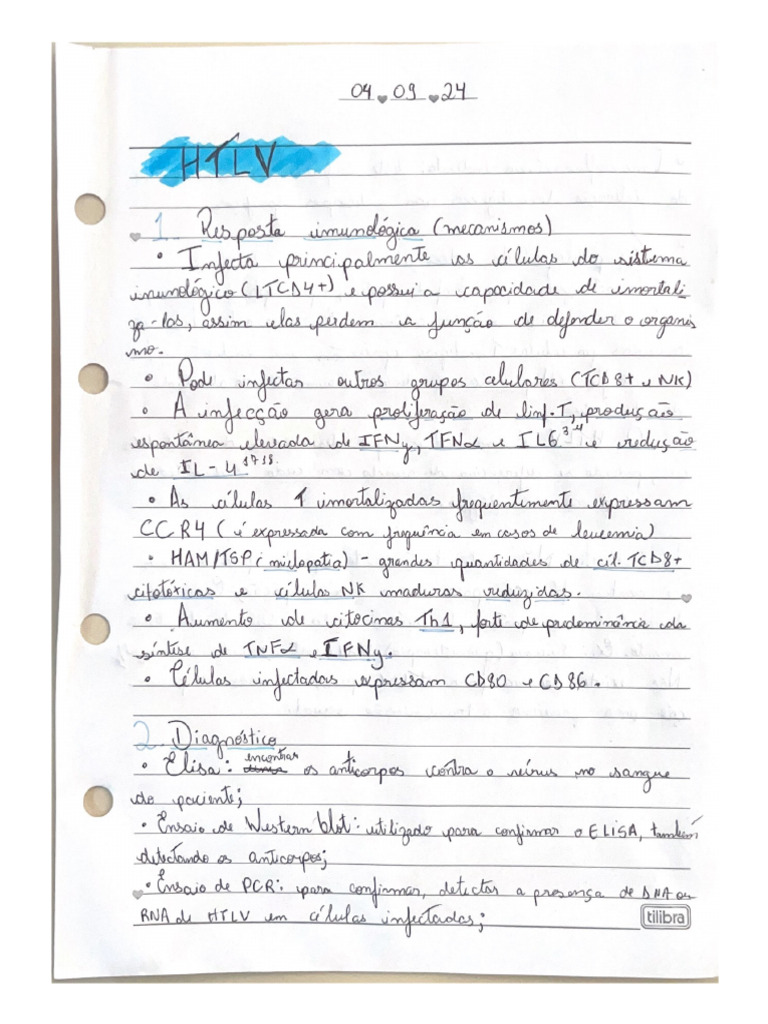 04 09 24
HTLV
1. Resposta imunológica (mecanismos)
• Infecta principalmente as células do sistema
imunológico (LTCD4+) e possui a capacidade de imortali-
za-las, assim elas perdem a função de defender o organis
mo.
• Pode infectar outros grupos celulares (TCD8+ e NK)
• A infecção gera proliferação de linf.T, produção
espontânea elevada de IFNγ, TFNα e IL6 3-4 e redução
de IL-4 17 18.
• As células T imortalizadas frequentemente expressam
CCR4 (é expressada com frequência em casos de leucemia)
• HAM/TSP (mielopatia) - grandes quantidades de cél. TCD8+
citotóxicas e células NK imaduras reduzidas.
• Aumento de citocinas Th1, forte de predominância da
síntese de TNFα e IFNγ.
• Células infectadas expressam CD80 e CD86.
2. Diagnóstico
• Elisa: encontrar os anticorpos contra o vírus no sangue
do paciente;
• Ensaio de Western blot: utilizado para confirmar o ELISA, também
detectando os anticorpos;
• Ensaio de PCR: para confirmar, detectar a presença de DNA ou
RNA de HTLV em células infectadas;
tilibra